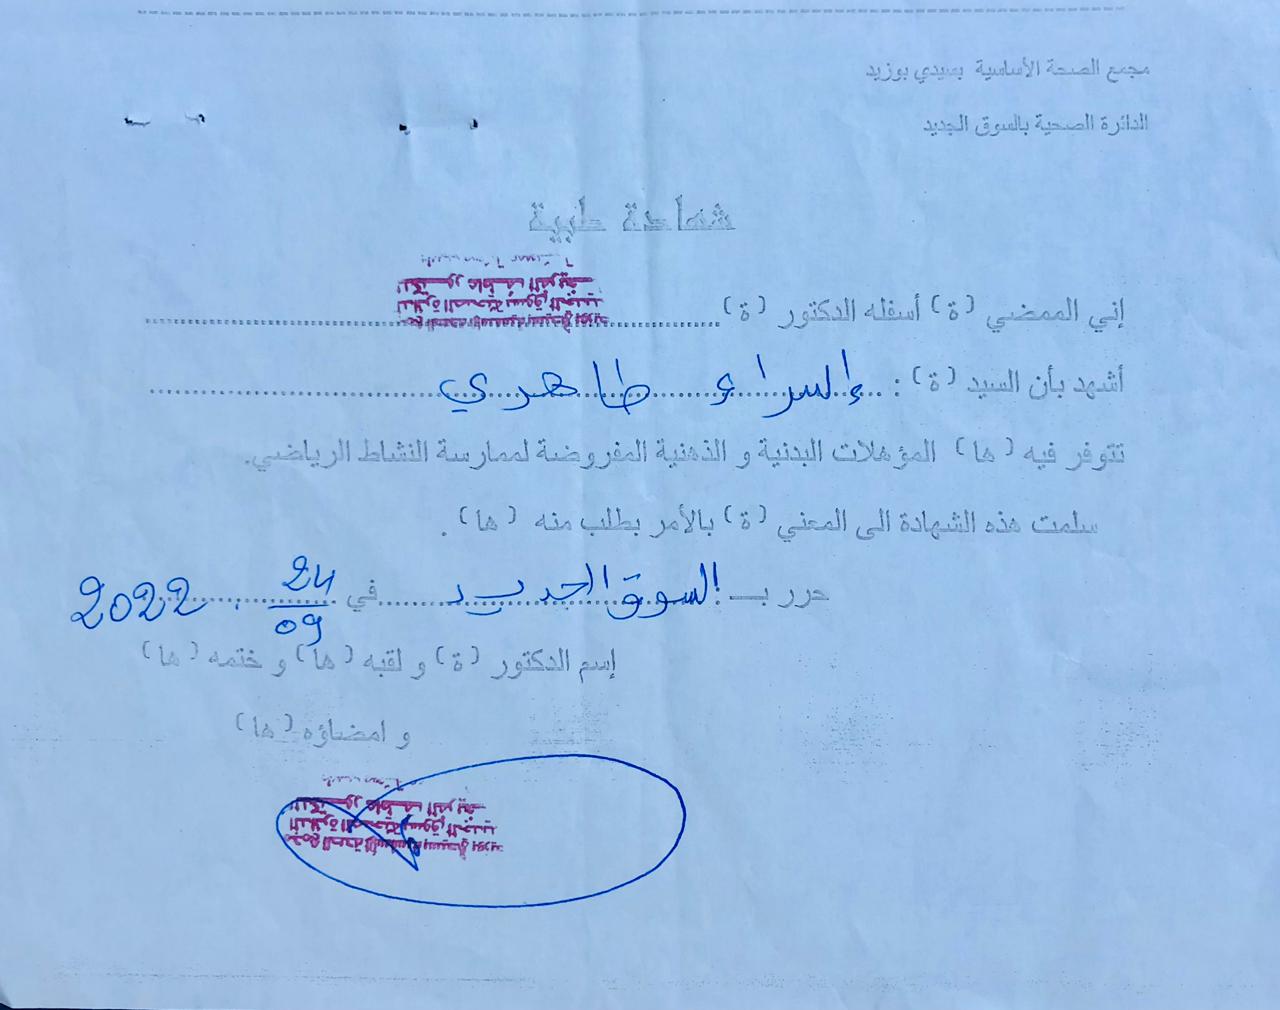 مجمع الصحة الأساسية بسيدي بوزيد
الدائرة الصحية بالسوق الجديد
شهادة طبية
إني الممضي (ة) أسفله الدكتور (ة)
أشهد بأن السيد (ة) : إسراء طاهري
تتوفر فيه (ها) المؤهلات البدنية و الذهنية المفروضة لممارسة النشاط الرياضي.
سلمت هذه الشهادة الى المعني (ة) بالأمر بطلب منه (ها) .
حرر بـ السوق الجديد في 24/09 2022
إسم الدكتور (ة) و لقبه (ها) و ختمه (ها)
و امضاؤه (ها)